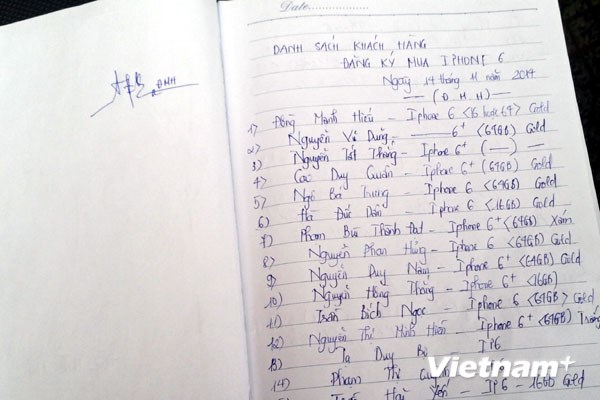 Date
ĐNH
DANH SÁCH KHÁCH HÀNG
ĐĂNG KÝ MUA IPHONE 6
Ngày 14 tháng 11 năm 2014
(Đ M H)
1) Đồng Mạnh Hiếu - Iphone 6 <16 hoặc 64> Gold
2) Nguyễn Vũ Dũng - 6+ <64GB) Gold
3) Nguyễn Tất Thắng - Iphone 6+ (—) —
4) Cao Duy Quân - Iphone 6+ (64GB) Gold
5) Ngô Bá Trung - Iphone 6 <64GB) Gold
6) Hà Đức Dân - Iphone 6 <16GB) Gold
7) Phạm Bùi Thành Đạt - Iphone 6+ <64GB) Xám
8) Nguyễn Phan Hùng - Iphone 6 <64GB) Gold
9) Nguyễn Duy Năng - Iphone 6+ <64GB) Gold
10) Nguyễn Hồng Thắng - Iphone 6+ <16GB)
11) Trần Bích Ngọc - Iphone 6 <64GB> Gold
12) Nguyễn Thị Minh Hiền - Iphone 6+ <64GB) Trắng
13) Tạ Duy IP6
14) Phạm Thị
Hải Yến - IP6 - 16GB Gold
Vietnam+